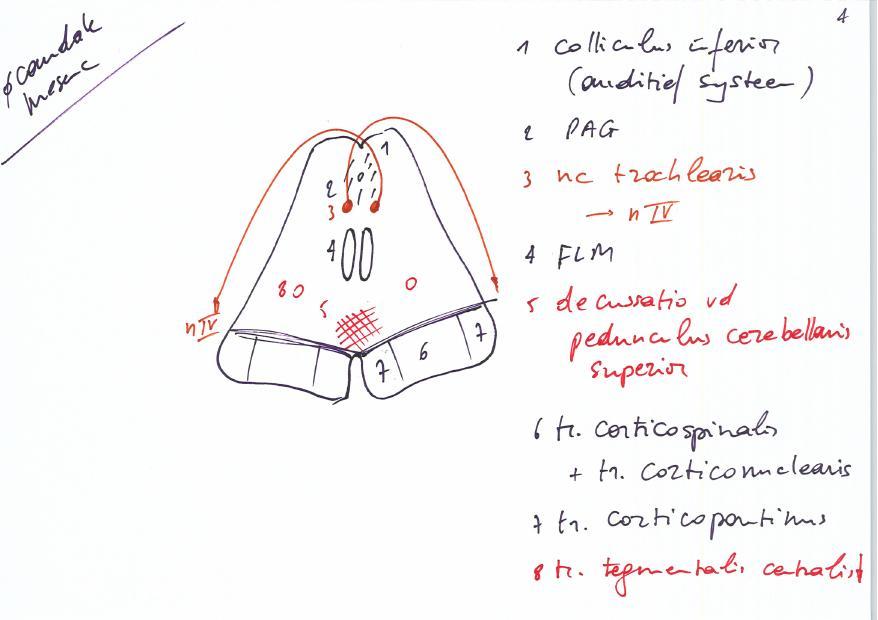 4
φ caudale
mesenc
1 colliculus inferior
(auditief systeem)
2 PAG
3 nc trochlearis
→ n IV
4 FLM
5 decussatio vd
pedunculus cerebellaris
superior
6 tr. corticospinalis
+ tr. corticonuclearis
7 tr. corticopontinus
8 tr. tegmentalis centralis
1
2
3
4
8
5
n IV
7
6
7